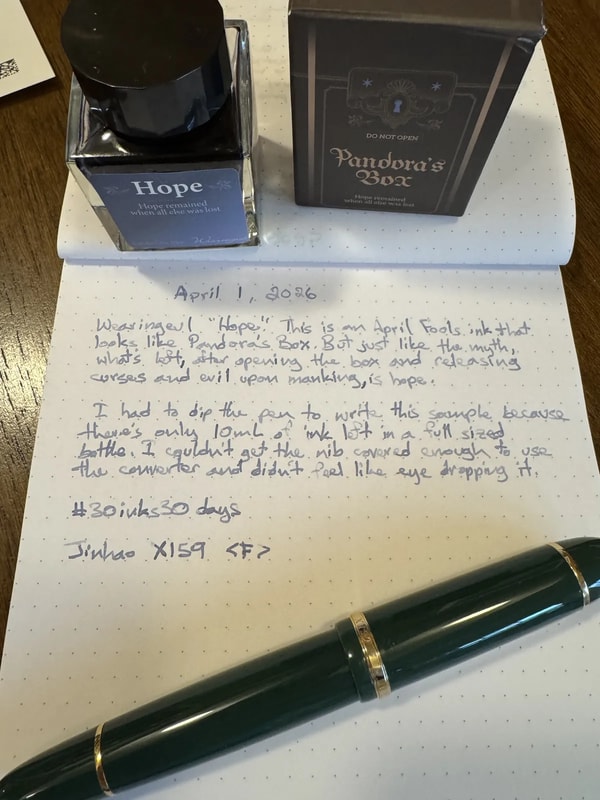 Hope
Hope remained
when all else was lost
DO NOT OPEN
Pandora's
Box
Hope remained
when all else was lost
April 1, 2026
Wearingeul "Hope." This is an April Fools ink that
looks like Pandora's Box. But just like the myth,
what's left, after opening the box and releasing
curses and evil upon manking, is hope.
I had to dip the pen to write this sample because
there's only 10mL of ink left in a full sized
bottle. I couldn't get the nib covered enough to use
the converter and didn't feel like eye dropping it.
#30inks30days
Jinhao X159 <F>